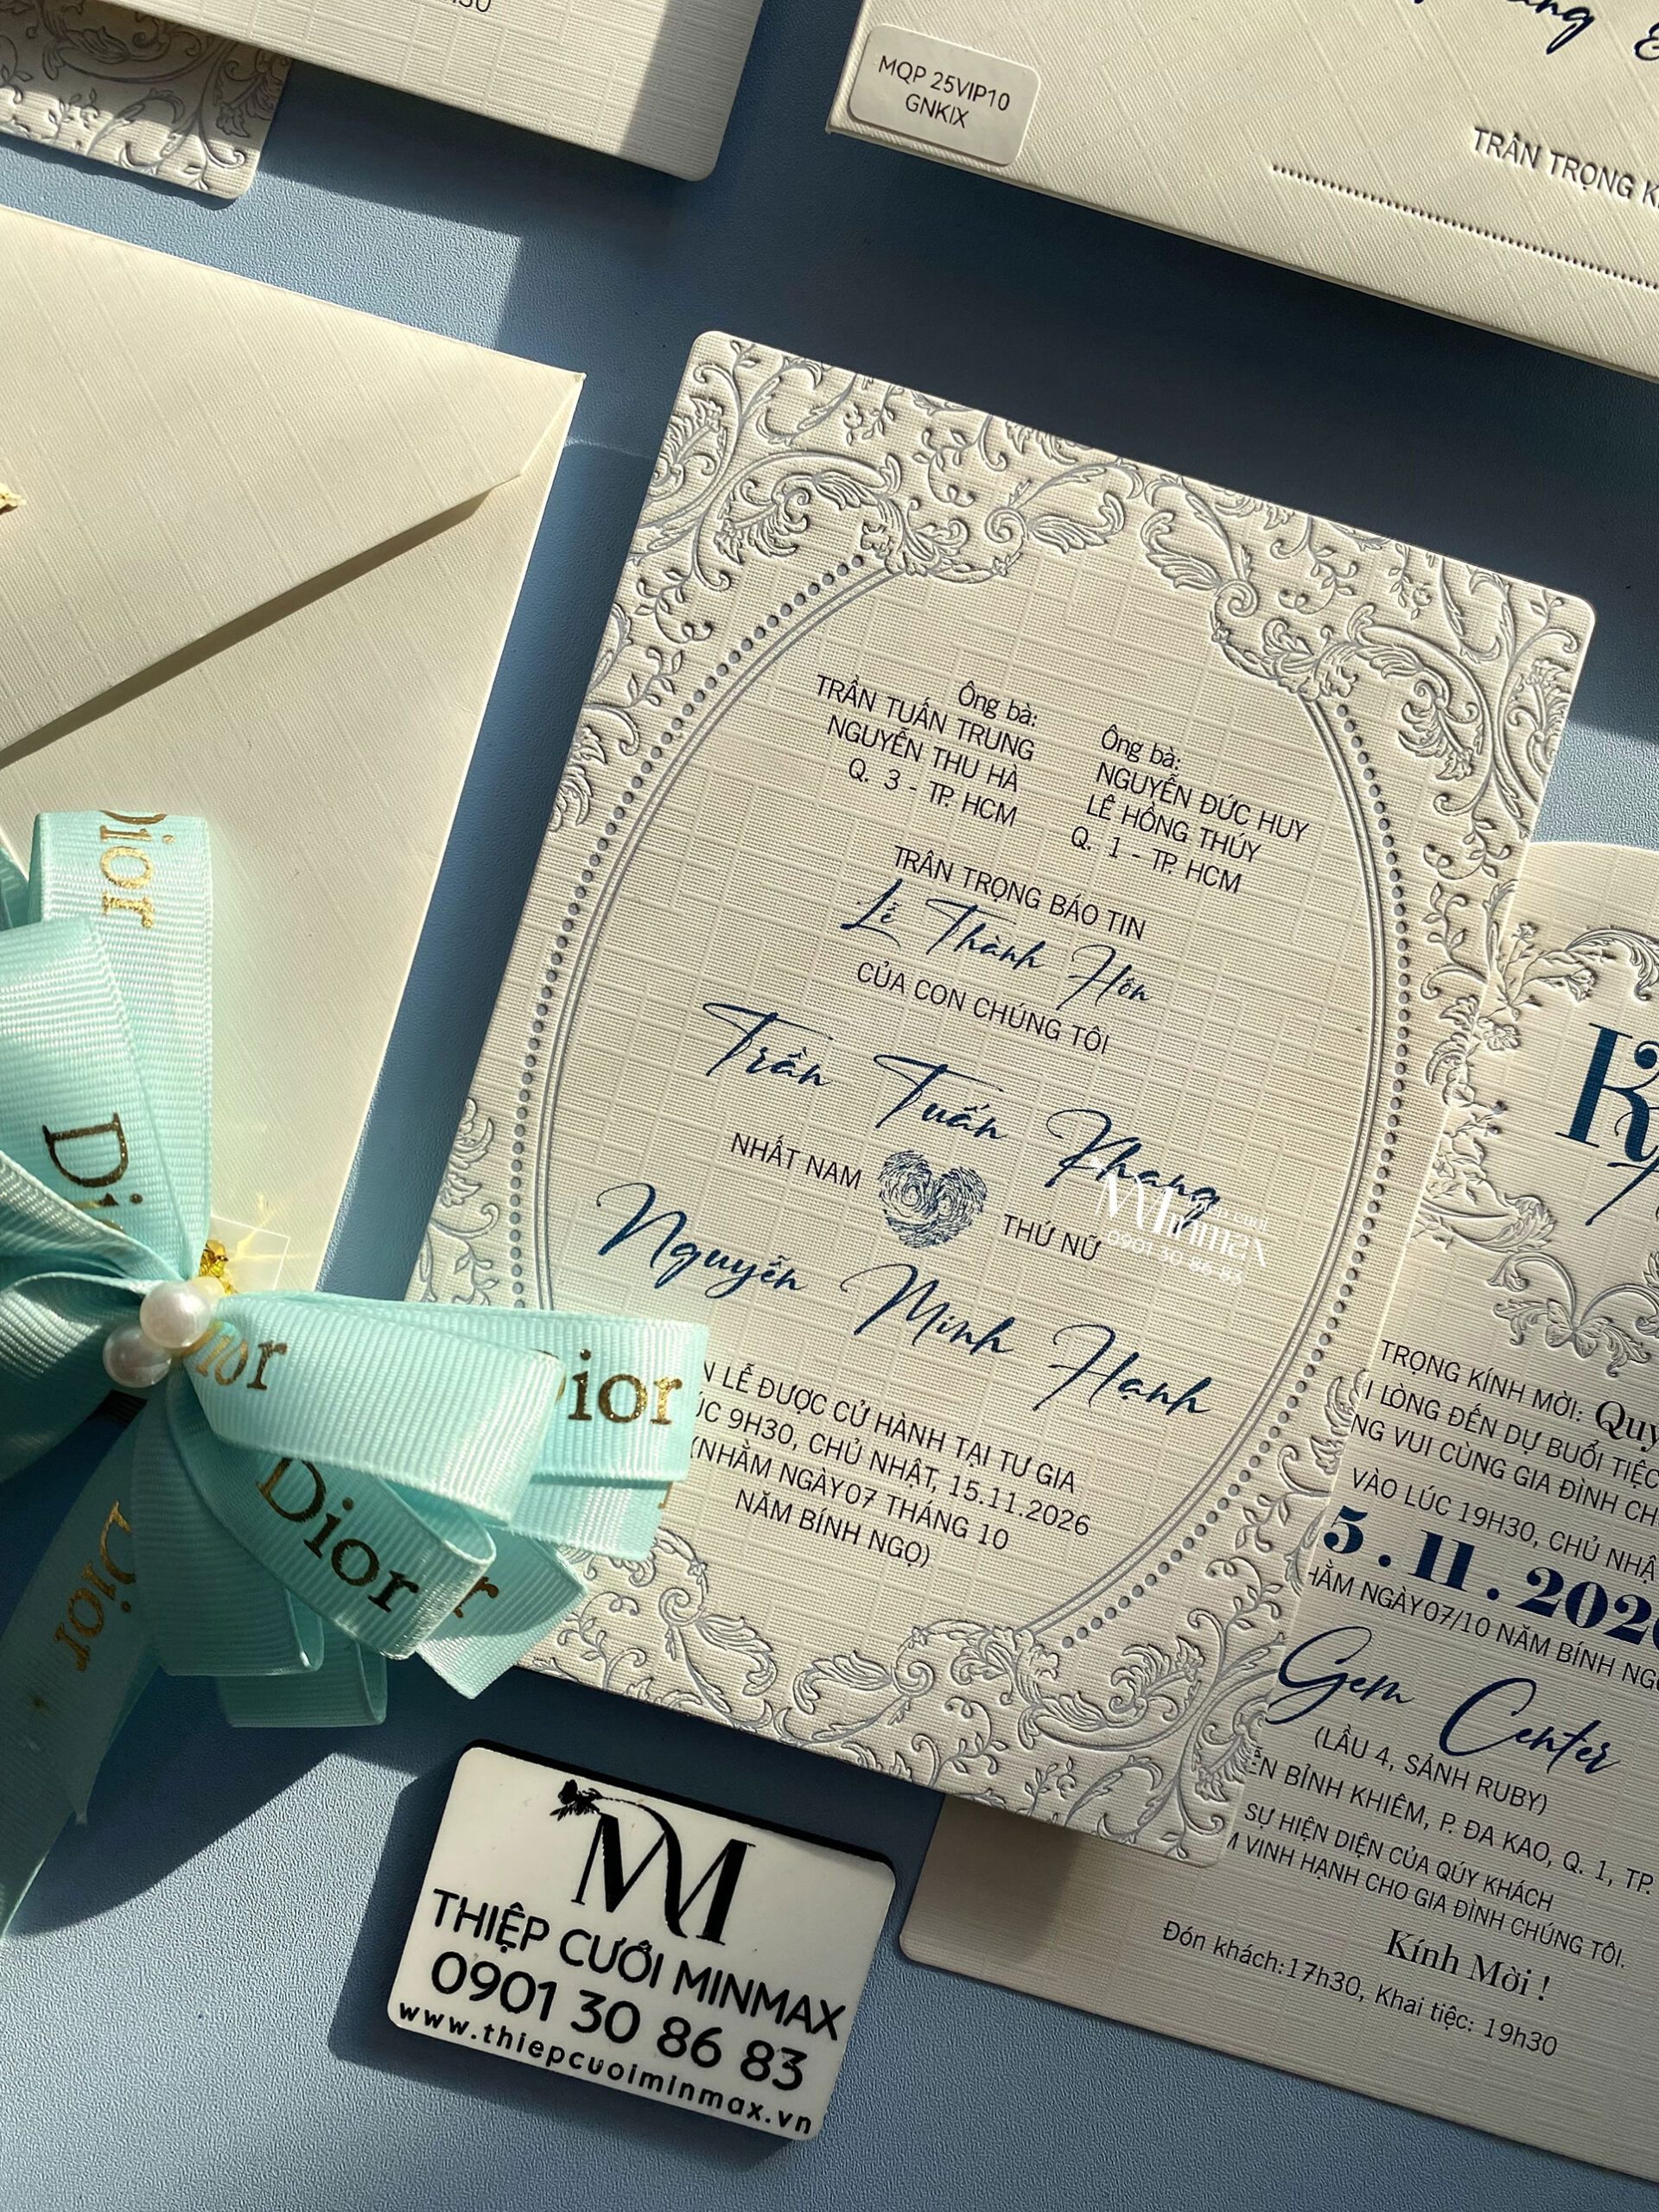 MQP 25VIP10
GNKIX
TRÂN TRỌNG
Ông bà:
TRẦN TUẤN TRUNG
NGUYỄN THU HÀ
Q. 3 - TP. HCM
Ông bà:
NGUYỄN ĐỨC HUY
LÊ HỒNG THÚY
Q. 1 - TP. HCM
TRÂN TRỌNG BÁO TIN
Lễ Thành Hôn
CỦA CON CHÚNG TÔI
Trần Tuấn Khang
NHẤT NAM
THỨ NỮ
Nguyễn Minh Hạnh
LỄ ĐƯỢC CỬ HÀNH TẠI TƯ GIA
9H30, CHỦ NHẬT, 15.11.2026
(NHẰM NGÀY 07 THÁNG 10
NĂM BÍNH NGỌ)
Minmax
0901 30 86 83
TRỌNG KÍNH MỜI:
LÒNG ĐẾN DỰ BUỔI TIỆC
VUI CÙNG GIA ĐÌNH
VÀO LÚC 19H30, CHỦ
5.11.202
NGÀY 07/10 NĂM BÍNH
Gem Center
(LẦU 4, SẢNH RUBY)
BỈNH KHIÊM, P. ĐA KAO, Q. 1, TP.
SỰ HIỆN DIỆN CỦA QÚY KHÁCH
VINH HẠNH CHO GIA ĐÌNH CHÚNG TÔI.
Kính Mời !
Đón khách:17h30, Khai tiệc: 19h30
Dior
Dior
Dior
Dior
M
THIỆP CƯỚI MINMAX
0901 30 86 83
www.thiepcuoiminmax.vn